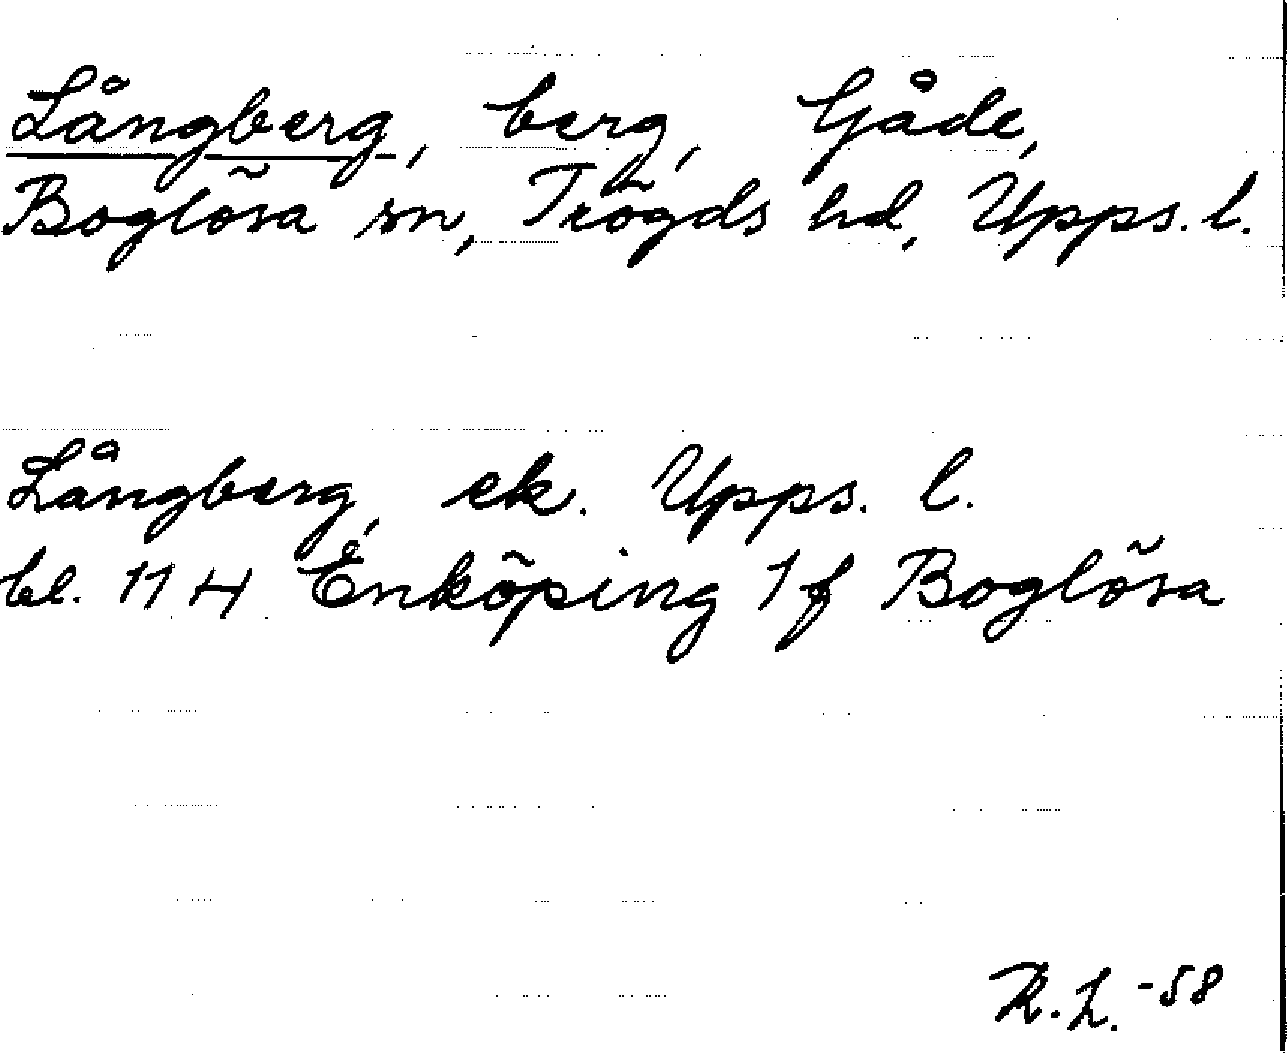 Långberg, berg, Gåde,
Boglösa sn, Trögds hd, Upps. l.
Långberg, ek. Upps. l.
bl. 11 H Enköping 1 f Boglösa
R.L. -58